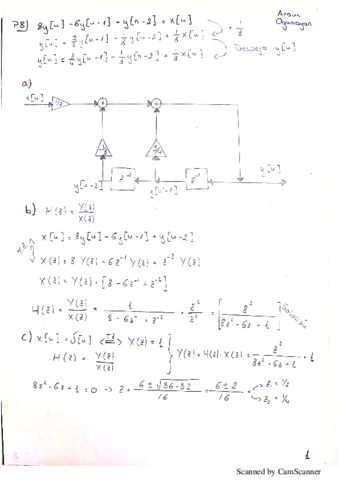 P8) 8y[n] - 6y[n-1] + y[n-2] = x[n]
· 1/8
y[n] = 3/4 y[n-1] - 1/8 y[n-2] + 1/8 x[n]
Despejo y[n]
a)
x[n] 1/8
-1/8
z⁻¹ z⁻¹ y[n]
y[n-2] y[n-1]
b) H(z) = Y(z)/X(z)
x[n] = 8y[n] - 6y[n-1] + y[n-2]
X(z) = 8 Y(z) - 6z⁻¹ Y(z) + z⁻² Y(z)
X(z) = Y(z) · [8 - 6z⁻¹ + z⁻²]
H(z) = Y(z)/X(z) = 1/(8 - 6z⁻¹ + z⁻²) · z²/z² = z²/(8z² - 6z + 1) Solución
c) x[n] = δ[n] <=> X(z) = 1
H(z) = Y(z)/X(z) } Y(z) = H(z) · X(z) = z²/(8z² - 6z + 1) · 1
8z² - 6z + 1 = 0 -> z = (6 ± √(36-32))/16 = (6 ± 2)/16 z₁ = 1/2
z₂ = 1/4
1
Scanned by CamScanner